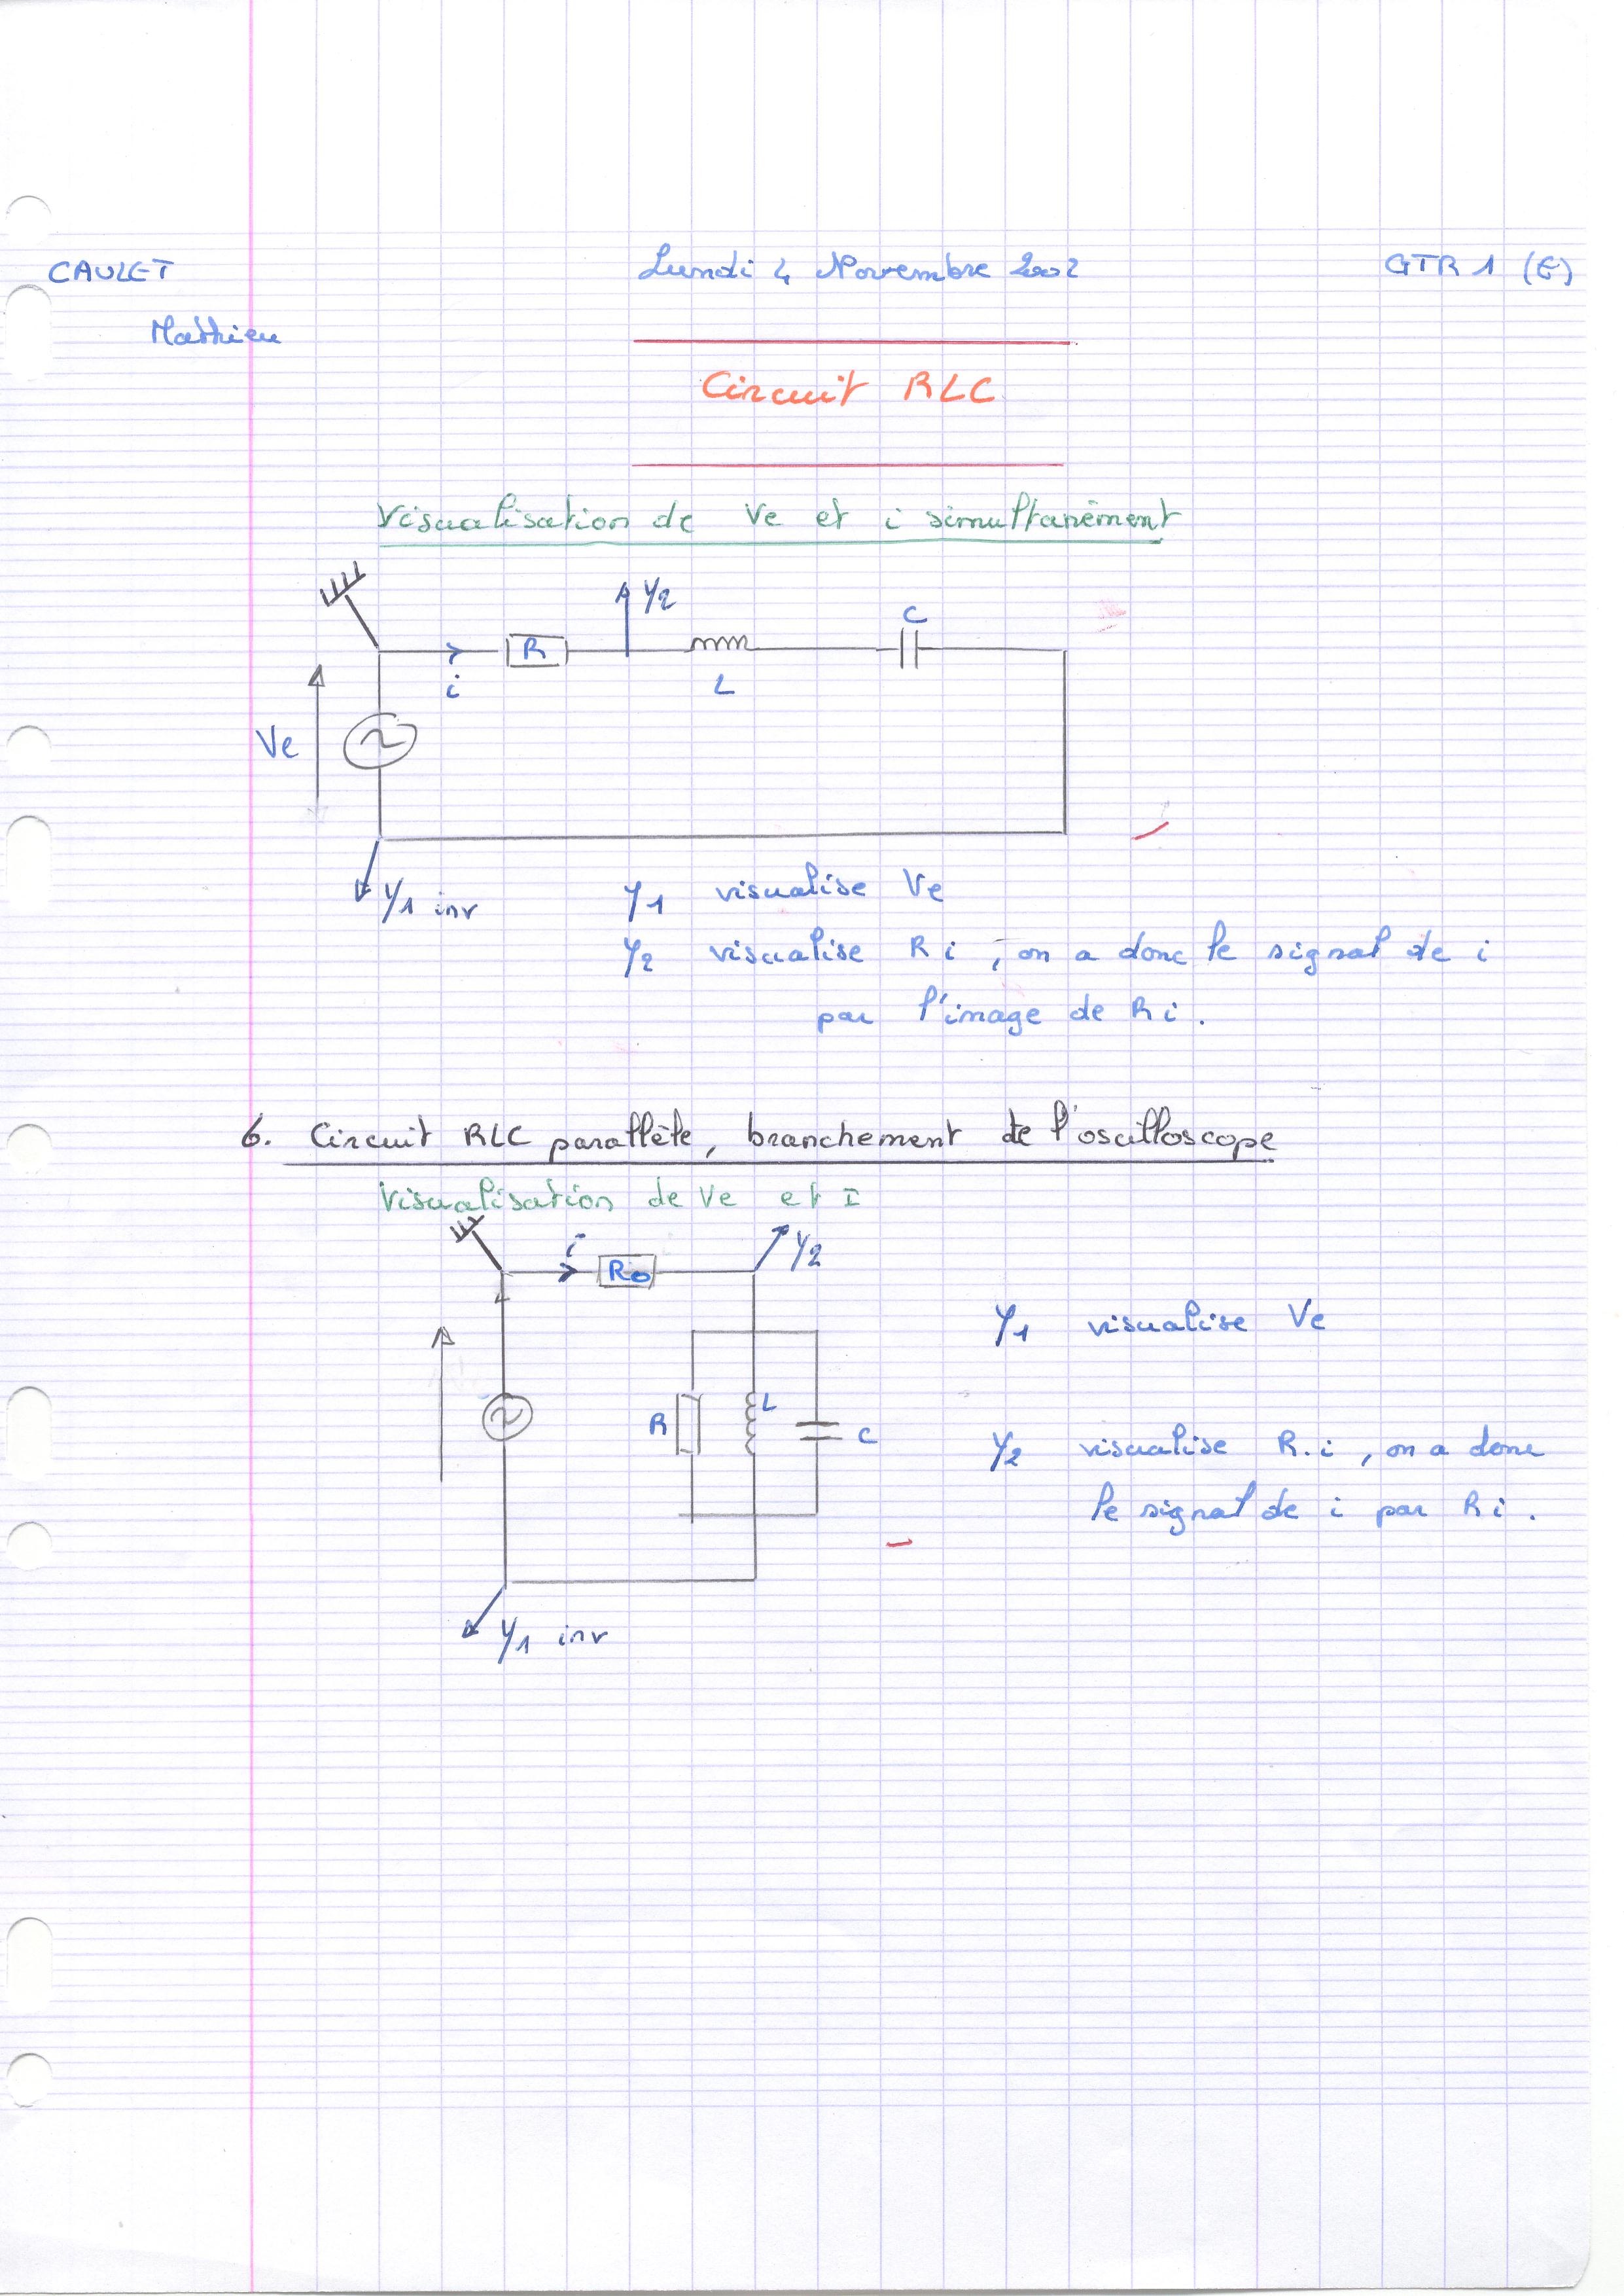 CAULET
Lundi 4 Novembre 2002
GTR 1 (E)
Mathieu
Circuit RLC
Visualisation de Ve et i simultanément
Y2
C
R
i
L
Ve
Y1 inv
Y1 visualise Ve
Y2 visualise Ri, on a donc le signal de i
par l'image de Ri.
6. Circuit RLC parallèle, branchement de l'oscilloscope
Visualisation de Ve et I
i
Y2
Ro
Y1 visualise Ve
R
L
C
Y2 visualise R.i, on a donc
le signal de i par Ri.
Y1 inv